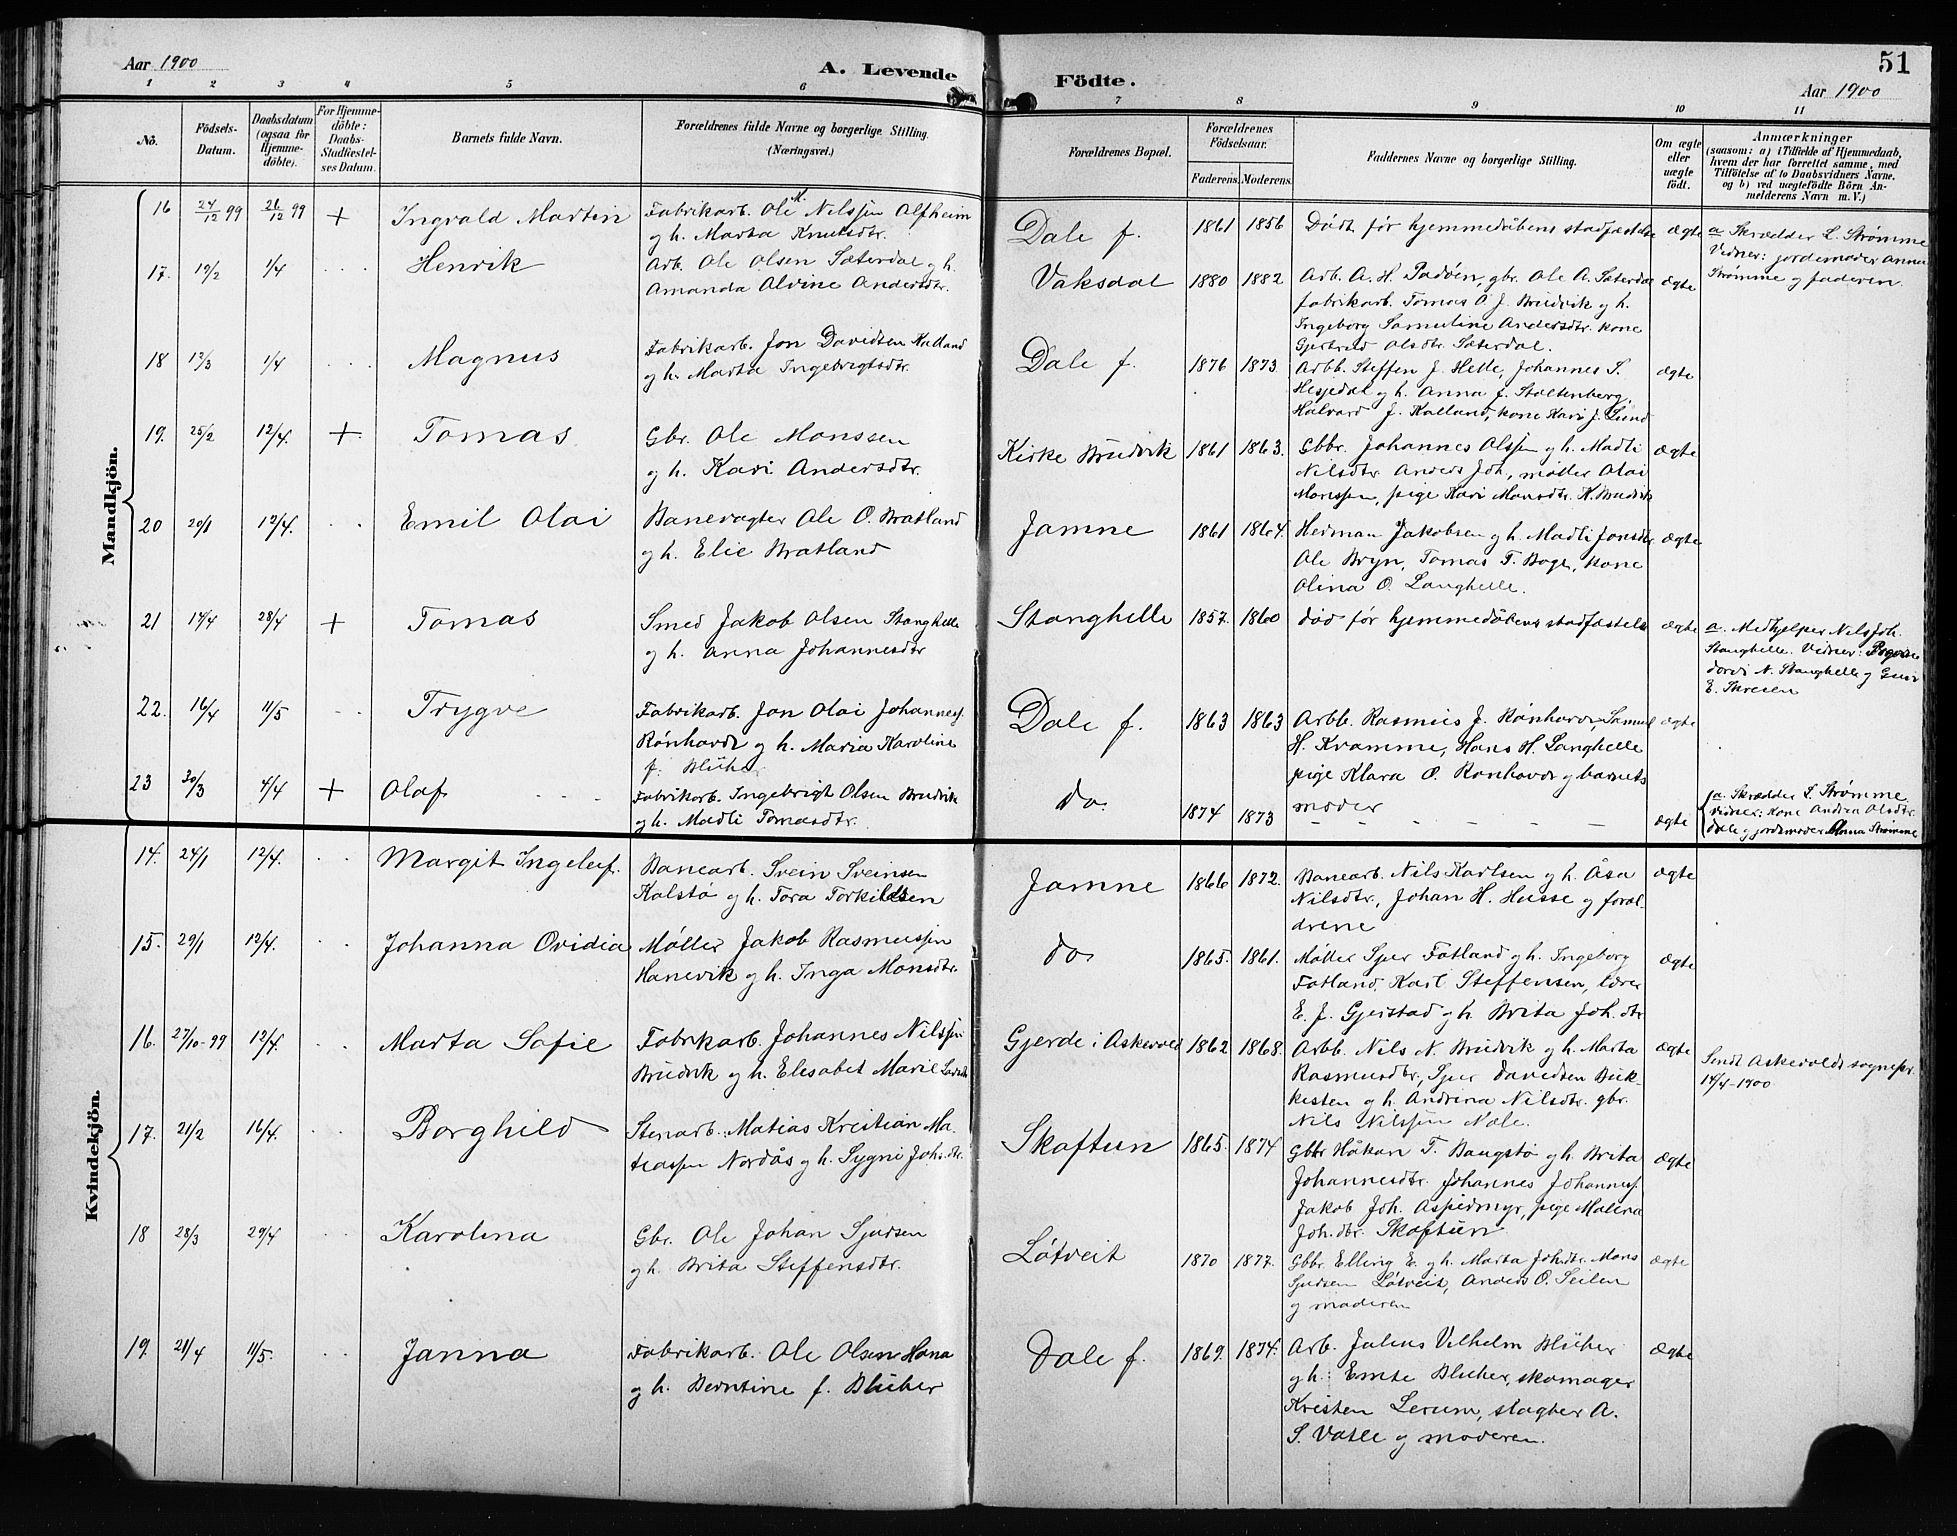 Aar 1900
A. Levende Födte.
51
Aar 1900
1 2 3 4 5 6 7 8 9 10 11
No.
Födsels-
Datum.
Daabsdatum
(ogsaa for
Hjemme-
döbte).
For Hjemme-
döbte:
Daabs-
Stadfæstel-
ses Datum.
Barnets fulde Navn.
Forældrenes fulde Navne og borgerlige Stilling.
(Næringsvei.)
Forældrenes Bopæl.
Forældrenes
Födselsaar.
Faderens. Moderens.
Faddernes Navne og borgerlige Stilling.
Om ægte
eller
uægte
födt.
Anmærkninger
(saasom: a) i Tilfælde af Hjemmedaab,
hvem der har forrettet samme, med
Tilföielse af to Daabsvidners Navne.
og b) ved uægtefödte Börn An-
melderens Navn m. V.)
Mandkjön.
16 24/12 99 26/12 99 + Ingvald Martin
Fabrikarb. Ole K. Nilssen Alfheim
og h. Marta Knutsdtr.
Dale f. 1861 1856
Dødt før hjemmedåbens stadfæstelse
ægte
a Skrædder L. Strømme
Vidner: jordemoder Anna
Strømme og faderen.
17. 19/2 1/4 Henrik
Arb. Ole Olsen Sæterdal og h.
Amanda Alvine Andersdtr.
Vaksdal 1880 1882
Arb. A. H. Padøen, gbr. Ole A. Sæterdal
fabrikarb. Tomas A. J. Brudvik og h.
Ingeborg Samuline Andersdtr. kone
Gjertrud Olsdtr. Sæterdal.
ægte
18 13/3 1/4 Magnus
Fabrikarb. Jon Davidsen Kalland
og h. Marta Ingebrigtsdtr.
Dale f. 1876 1873
Arbb. Steffen J. Helle, Johannes S.
Hesjedal og h. Anna f. Stoltenberg,
Halvard J. Kalland, kone Kari J. Lund
ægte
19. 25/2 12/4. + Tomas
Gbr. Ole Monssen
og h. Kari Andersdtr.
Kirke Brudvik 1861 1863.
Gbbr. Johannes Olssen og h. Madli
Nilsdtr. Anders Joh., møller Olai
Monssen, pige Kari Monsdtr. K. Brudvik
ægte
20 20/1 12/4. Emil Olai
Banevogter Ole O. Bratland
og h. Elie Bratland
Jamne 1861 1864.
Herman Jakobsen og h. Madli Jonsdtr.
Ole Bryn, Tomas T. Boge, kone
Olina O. Langhelle.
ægte
21 14/4 28/4 + Tomas
Smed Jakob Olsen Stanghelle
og h. Anna Johannesdtr
Stanghelle 1857. 1860
død før hjemmedåbens stadfæstelse
ægte
a. Medhjelper Nils Joh.
Stanghelle. Vidner:
N. Stanghelle og
E.
22. 16/4 11/5 Trygve
Fabrikarb. Jon Olai Johannesf.
Rønhovde og h. Maria Karoline
f. Blüher
Dale f. 1863 1863
Arbb. Rasmus J. Rønhovde, Samuel
H. Kramme, Hans H. Langhelle
pige Klara O. Rønhovde og barnets
moder
ægte
23 30/3 4/4 + Olaf
Fabrikarb. Ingebrigt Olsen Brudvik
og h. Madli Tomasdtr.
do. 1874 1873
ægte
a. Skrædder L. Strømme
vidner: Kone Andrea Olsdtr.
Dale og jordemoder Anna Strømme
Kvindekjön.
14. 24/1 12/4. Margit Ingeleif.
Banearb. Svein Sveinsen
Kalstø og h. Tora Torkildsen
Jamne 1866 1872.
Banearb. Nils Karlsen og h. Åsa
Nilsdtr., Johan H. Husse og foræl-
drene
ægte
15. 29/1 12/4. Johanna Ovidia
Møller Jakob Rasmussen
Hanevik og h. Inga Monsdtr.
do 1865. 1861.
Møller Sjur Fatland og h. Ingeborg
Fatland, Karl Steffensen, lærer
E. J. Gjerstad og h. Brita Joh. dtr
ægte
16. 27/10-99 12/4. Marta Sofie
Fabrikarb. Johannes Nilssen
Brudvik og h. Elesabet Marie
Gjerde i Askevold 1862 1868.
Arbb. Nils N. Brudvik og h. Marta
Rasmusdtr, Sjur Davidsen Buk-
kesten og h. Andrina Nilsdtr. gbr.
Nils Nilssen Nale.
ægte
Sendt Askevolds sognepr.
14/4-1900
17. 21/2 16/4. Borghild
Stenarb. Matias Kristian Ma-
tiassen Nordås og h. Sygni Joh.dtr.
Skaftun 1865. 1874
Gbbr Håkan T. Baugstø og h. Brita
Johannesdtr. Johannes Johannesf.
Jakob Joh. Aspedmyr, pige Malena
Joh. dtr. Skaftun
ægte
18 28/3 29/4 Karolina
Gbr. Ole Johan Sjursen
og h. Brita Steffensdtr.
Løtveit 1870 1877.
Gbbr. Elling E. og h. Marta Joh.dtr. Mons
Sjursen Løtveit, Anders O. Seilen
og moderen
ægte
19. 21/4 11/5. Janna
Fabrikarb. Ole Olsen Hana
og h. Berntine f. Blüher
Dale f. 1869. 1874.
Arb. Julius Vilhelm Blüher
og h. Emte Bluher, skomager
Kristen Lerum, slagter A.
S. Vatle og moderen.
ægte